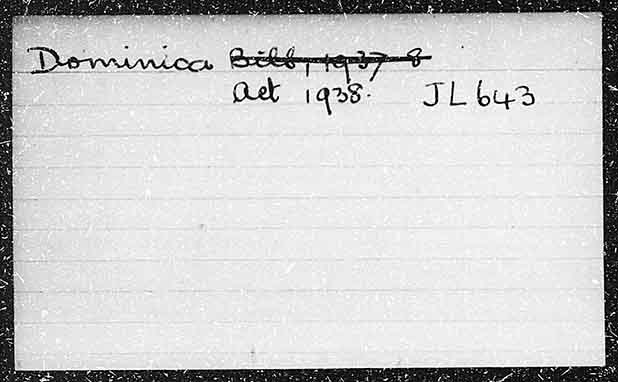 Dominica Bill, 1937-8
Act 1938. JL643